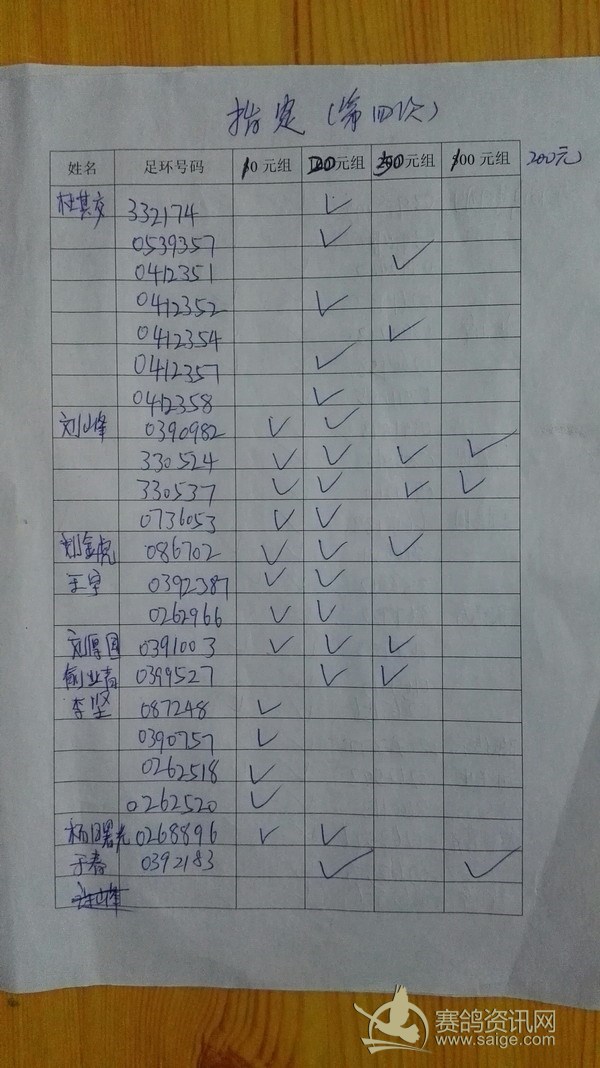 指定（第四次）
姓名 足环号码 10元组 100元组 元组 100元组 200元
杜其 332174 ✓
0539357 ✓
0412351 ✓
0412352 ✓
0412354 ✓
0412357 ✓
0412358 ✓
刘山峰 0390982 ✓ ✓
330524 ✓ ✓ ✓ ✓
330537 ✓ ✓ ✓ ✓
0736053 ✓ ✓
刘金虎 086702 ✓ ✓ ✓
王宇 0392387 ✓ ✓
0262966 ✓ ✓
刘厚国 0391003 ✓ ✓ ✓
俞业青 0399527 ✓ ✓
李坚 087248 ✓
0390757 ✓
0262518 ✓
0262520 ✓
杨曙光 0268896 ✓ ✓
于春 0392183 ✓ ✓
赛鸽资讯网
www.saige.com